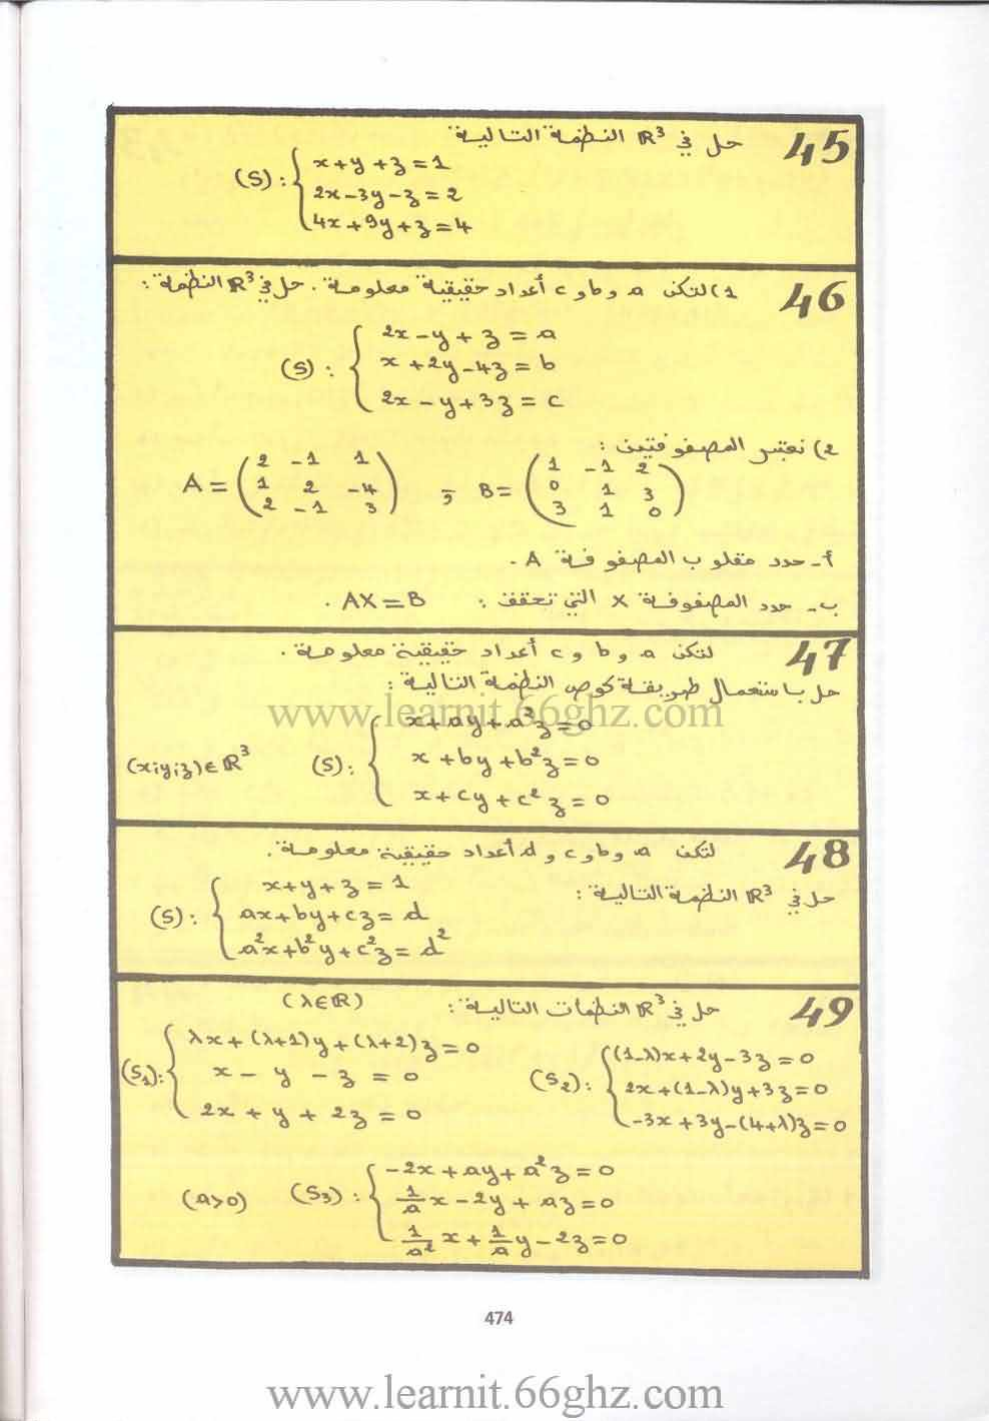 45 حل في ℝ³ النظمة التالية:
(S): { x+y+z=1
2x-3y-z=2
4x+9y+z=4
46 1) لتكن a و b و c أعداد حقيقية معلومة. حل في ℝ³ النظمة:
(S): { 2x-y+z=a
x+2y-4z=b
2x-y+3z=c
2) نعتبر المصفوفتين:
A = ( 2 -1 1 ; 1 2 -4 ; 2 -1 3 ) و B = ( 1 -1 2 ; 0 1 3 ; 3 1 0 )
أ- حدد مقلوب المصفوفة A.
ب- حدد المصفوفة X التي تحقق: AX=B.
47 لتكن a و b و c أعداد حقيقية معلومة.
حل باستعمال طريقة كوص النظمة التالية:
www.learnit.66ghz.com
(x;y;z)∈ℝ³ (S): { x+ay+a²z=0
x+by+b²z=0
x+cy+c²z=0
48 لتكن a و b و c و d أعداد حقيقية معلومة.
حل في ℝ³ النظمة التالية:
(S): { x+y+z=1
ax+by+cz=d
a²x+b²y+c²z=d²
49 حل في ℝ³ النظمات التالية: (λ∈ℝ)
(S₁): { λx+(λ+1)y+(λ+2)z=0
x-y-z=0
2x+y+2z=0
(S₂): { (1-λ)x+2y-3z=0
2x+(1-λ)y+3z=0
-3x+3y-(4+λ)z=0
(a>0) (S₃): { -2x+ay+a²z=0
1/a x-2y+az=0
1/a² x+1/a y-2z=0
474
www.learnit.66ghz.com